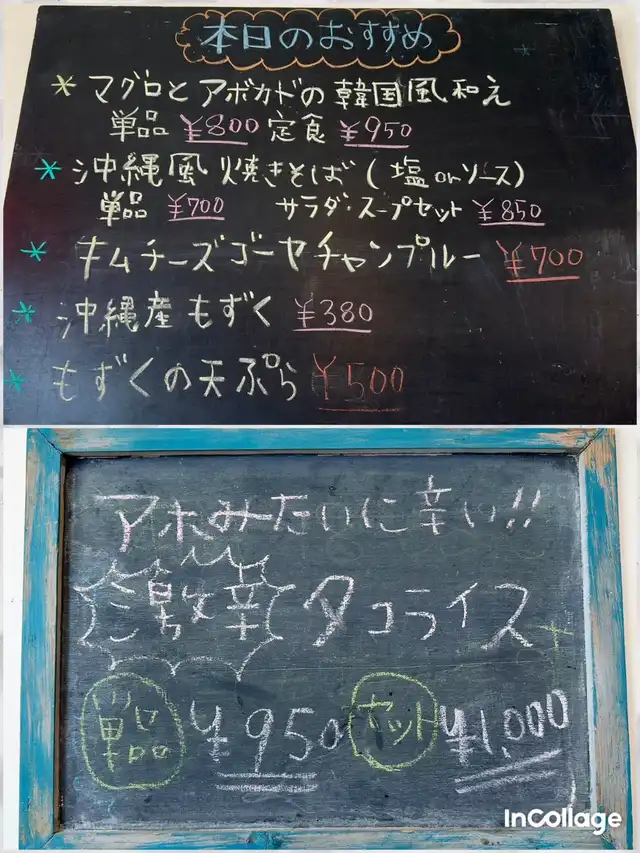 本日のおすすめ
* マグロとアボカドの韓国風和え
単品 ¥800 定食 ¥950
* 沖縄風焼きそば(塩orソース)
単品 ¥700 サラダ・スープセット ¥850
* キムチーズゴーヤチャンプルー ¥700
* 沖縄産もずく ¥380
* もずくの天ぷら ¥500
アホみたいに辛い!!
激辛タコライス
単品 ¥950 セット ¥1,000
InCollage